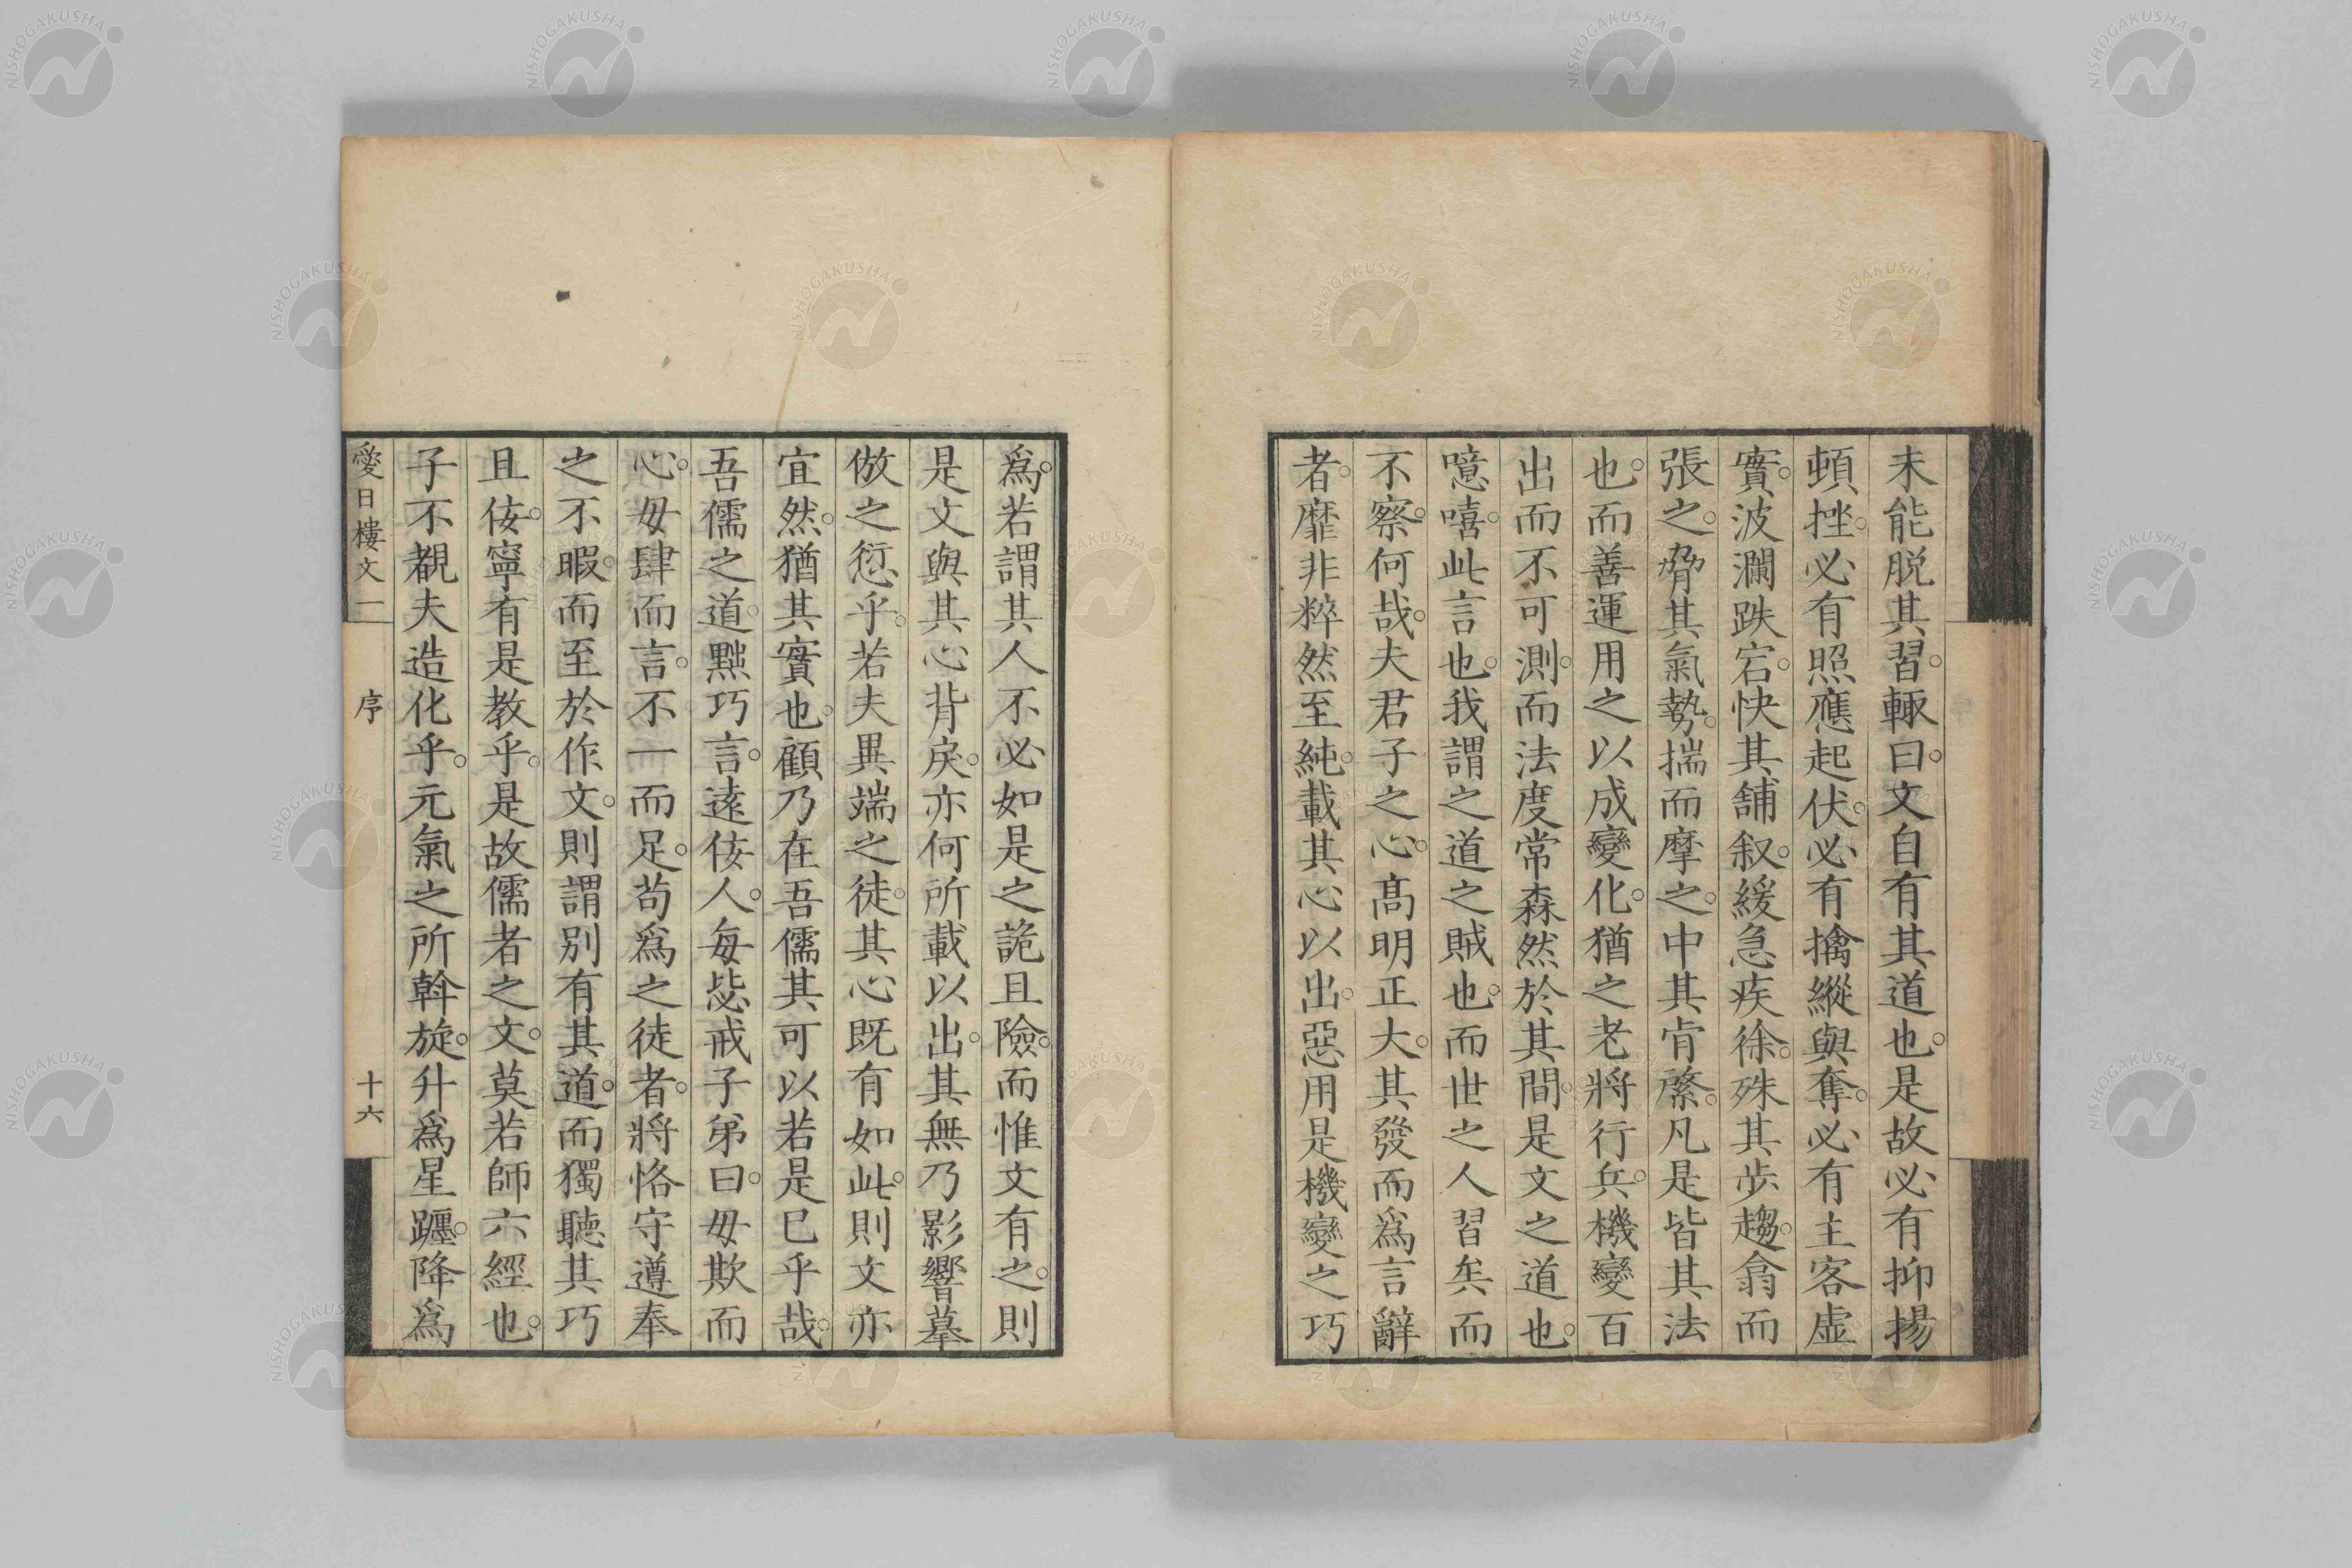 未能脱其習。輙曰。文自有其道也。是故必有抑揚
頓挫。必有照應起伏。必有擒縱與奪。必有主客虛
實。波瀾跌宕。快其舖叙。緩急疾徐。殊其步趨。翕而
張之。脅其氣勢。揣而摩之。中其肯綮。凡是皆其法
也。而善運用之以成變化。猶之老將行兵。機變百
出而不可測。而法度常森然於其間。是文之道也。
噫嘻。此言也。我謂之道之賊也。而世之人習矣而
不察。何哉。夫君子之心。髙明正大。其發而爲言辭
者。靡非粹然至純。載其心以出。惡用是機變之巧
爲。若謂其人不必如是之詭且險。而惟文有之。則
是文與其心背戾。亦何所載以出。其無乃影響摹
倣之愆乎。若夫異端之徒。其心既有如此。則文亦
宜然。猶其實也。顧乃在吾儒其可以若是已乎哉。
吾儒之道。黜巧言。遠佞人。每毖戒子弟曰。毋欺而
心。毋肆而言。不一而足。苟爲之徒者。將恪守遵奉
之不暇。而至於作文。則謂別有其道。而獨聽其巧
且佞。寧有是教乎。是故儒者之文。莫若師六經也。
子不覩夫造化乎。元氣之所斡旋。升爲星躔。降爲
愛日樓文一 序 十六
NISHOGAKUSHA